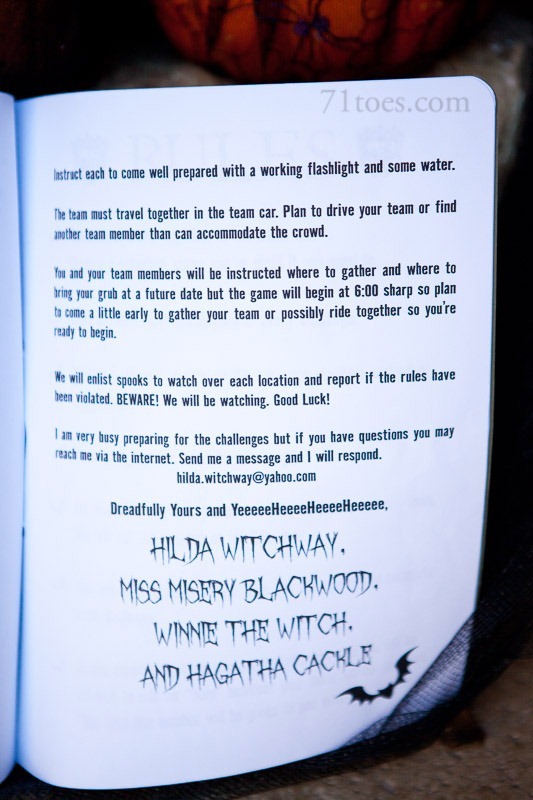 71toes.com
Instruct each to come well prepared with a working flashlight and some water.
The team must travel together in the team car. Plan to drive your team or find
another team member than can accommodate the crowd.
You and your team members will be instructed where to gather and where to
bring your grub at a future date but the game will begin at 6:00 sharp so plan
to come a little early to gather your team or possibly ride together so you're
ready to begin.
We will enlist spooks to watch over each location and report if the rules have
been violated. BEWARE! We will be watching. Good Luck!
I am very busy preparing for the challenges but if you have questions you may
reach me via the internet. Send me a message and I will respond.
hilda.witchway@yahoo.com
Dreadfully Yours and YeeeeeHeeeeHeeeeHeeeee,
HILDA WITCHWAY,
MISS MISERY BLACKWOOD,
WINNIE THE WITCH,
AND HAGATHA CACKLE